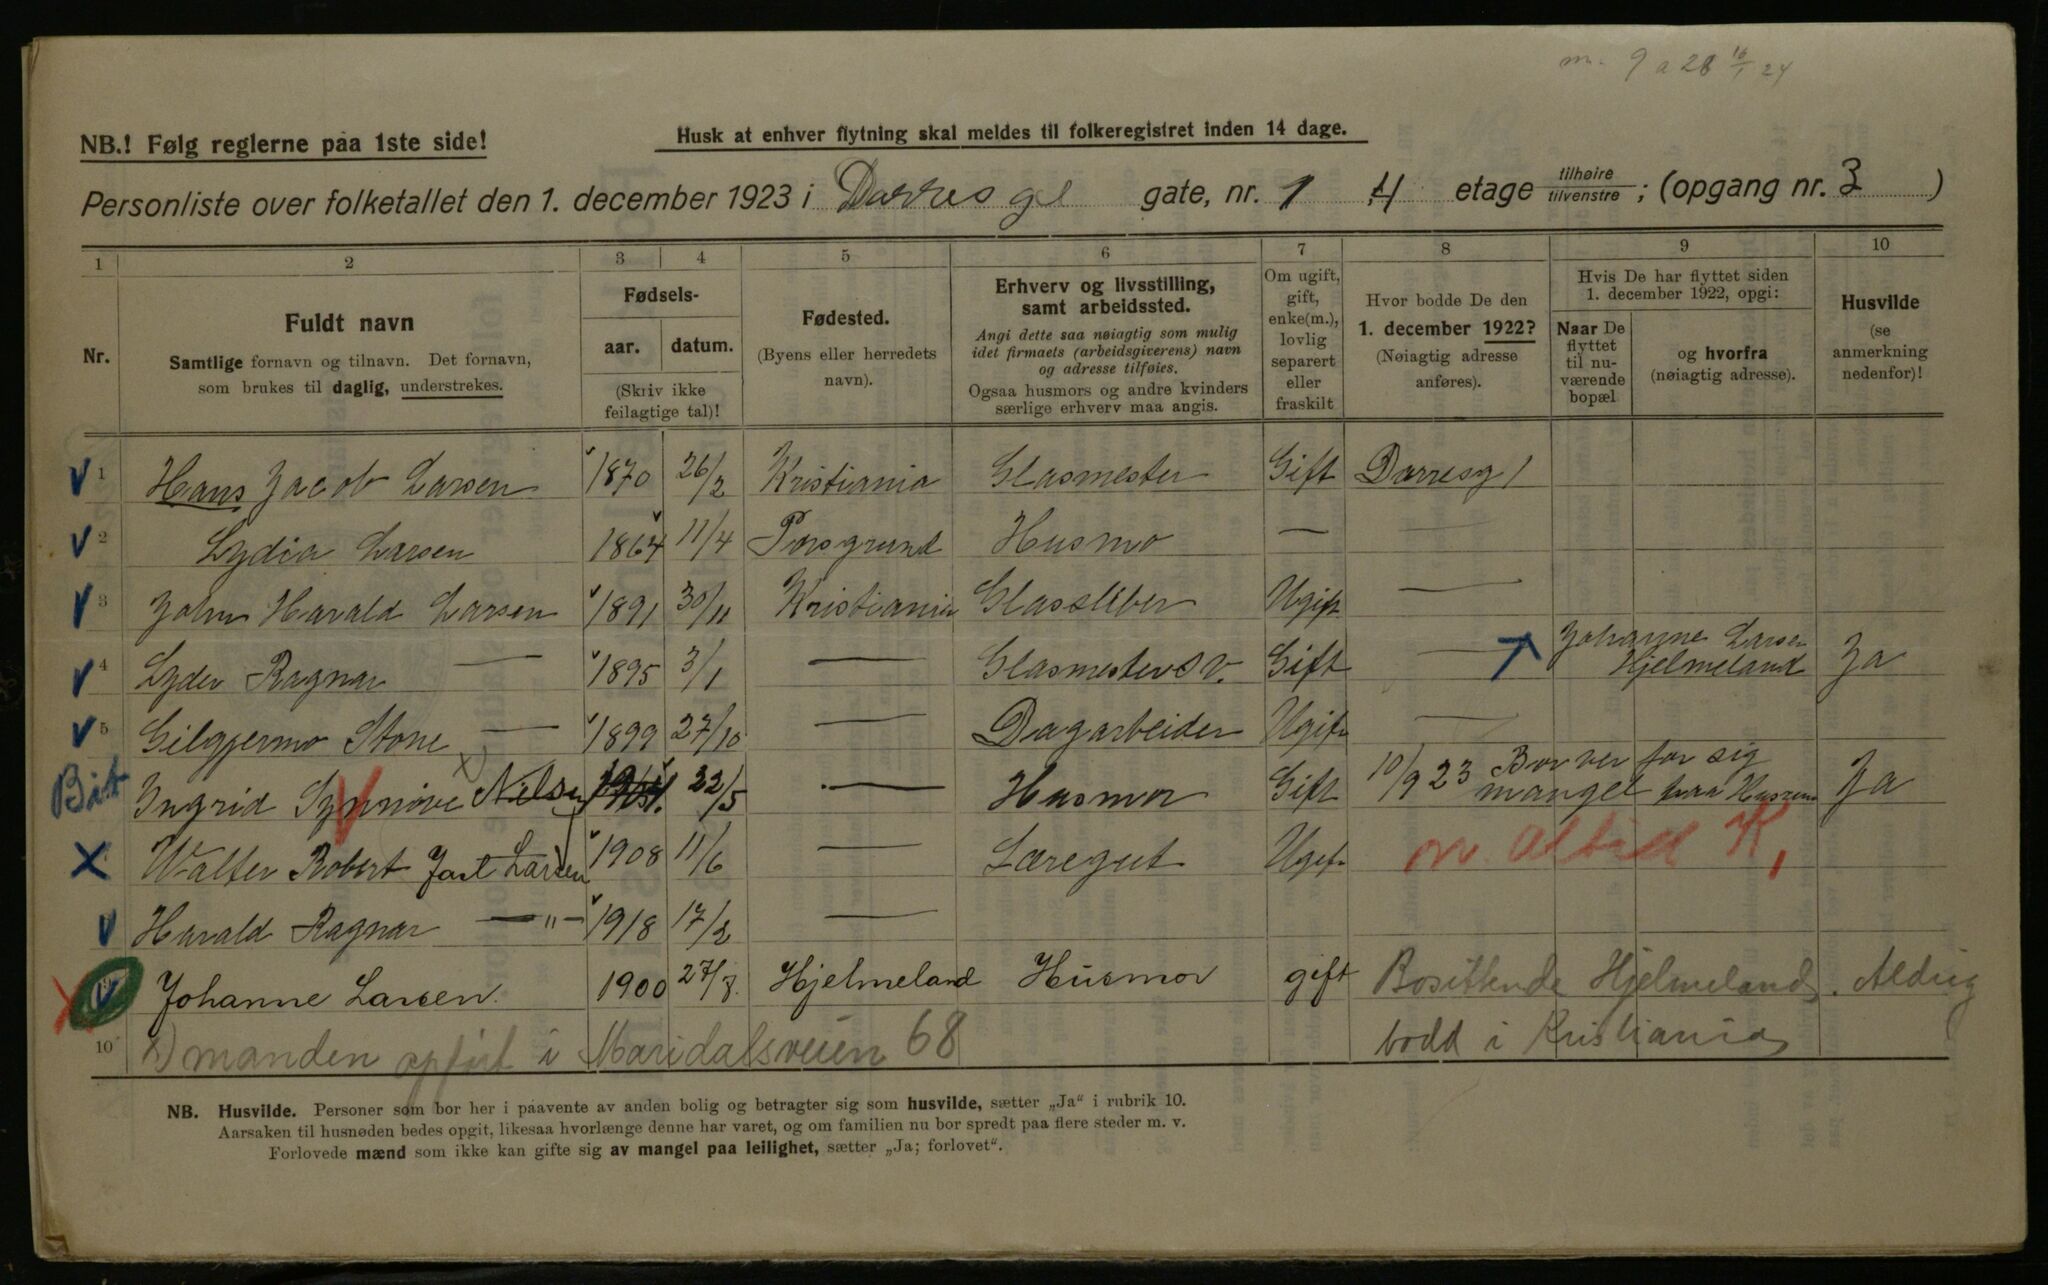 m. 9 a 28 16/1 24
NB.! Følg reglerne paa 1ste side!
Husk at enhver flytning skal meldes til folkeregistret inden 14 dage.
Personliste over folketallet den 1. december 1923 i Darres gt gate, nr. 1 4 etage tilhøire/tilvenstre; (opgang nr. 3)
1 2 3 4 5 6 7 8 9 10
Nr.
Fuldt navn
Samtlige fornavn og tilnavn. Det fornavn,
som brukes til daglig, understrekes.
Fødsels-
aar. datum.
(Skriv ikke
feilagtige tal)!
Fødested.
(Byens eller herredets
navn).
Erhverv og livsstilling,
samt arbeidssted.
Angi dette saa nøiagtig som mulig
idet firmaets (arbeidsgiverens) navn
og adresse tilføies.
Ogsaa husmors og andre kvinders
særlige erhverv maa angis.
Om ugift,
gift,
enke(m.),
lovlig
separert
eller
fraskilt
Hvor bodde De den
1. december 1922?
(Nøiagtig adresse
anføres).
Hvis De har flyttet siden
1. december 1922, opgi:
Naar De
flyttet
til nu-
værende
bopæl
og hvorfra
(nøiagtig adresse).
Husvilde
(se
anmerkning
nedenfor)!
1 Hans Jacob Larsen 1870 26/2 Kristiania Glasmester Gift Darresg 1
2 Lydia Larsen 1864 11/4 Porsgrund Husmo — —
3 John Harald Larsen 1891 30/11 Kristiania Glassliber Ugift —
Johanne Larsen
4 Lyder Ragnar — 1895 3/1 — Glasmestersv. Gift — Hjelmeland Ja
5 Stone — 1899 27/10 — Dagarbeider Ugift —
Ingrid Synnøve Nilsen 22/5 — Husmor Gift 10/9 23 Bor ver for sig
mangel paa Husrum Ja
Walter Robert Jarl Larsen 1908 11/6 — Læregut Ugift altid K,
Harald Ragnar —"— 1918 17/2 —
Johanne Larsen. 1900 27/8. Hjelmeland Husmor gift Bosittende Hjelmeland. Aldrig
10 x) manden opført i Maridalsveien 68 bodd i Kristiania
NB. Husvilde. Personer som bor her i paavente av anden bolig og betragter sig som husvilde, sætter „Ja" i rubrik 10.
Aarsaken til husnøden bedes opgit, likesaa hvorlænge denne har varet, og om familien nu bor spredt paa flere steder m. v.
Forlovede mænd som ikke kan gifte sig av mangel paa leilighet, sætter „Ja; forlovet".